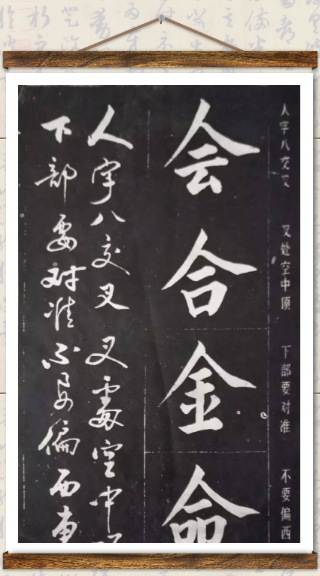 人字八交叉 叉处空中顶 下部要对准 不要偏西
会合金命
人字八交叉 叉處空中
下部要对准 不要偏西东